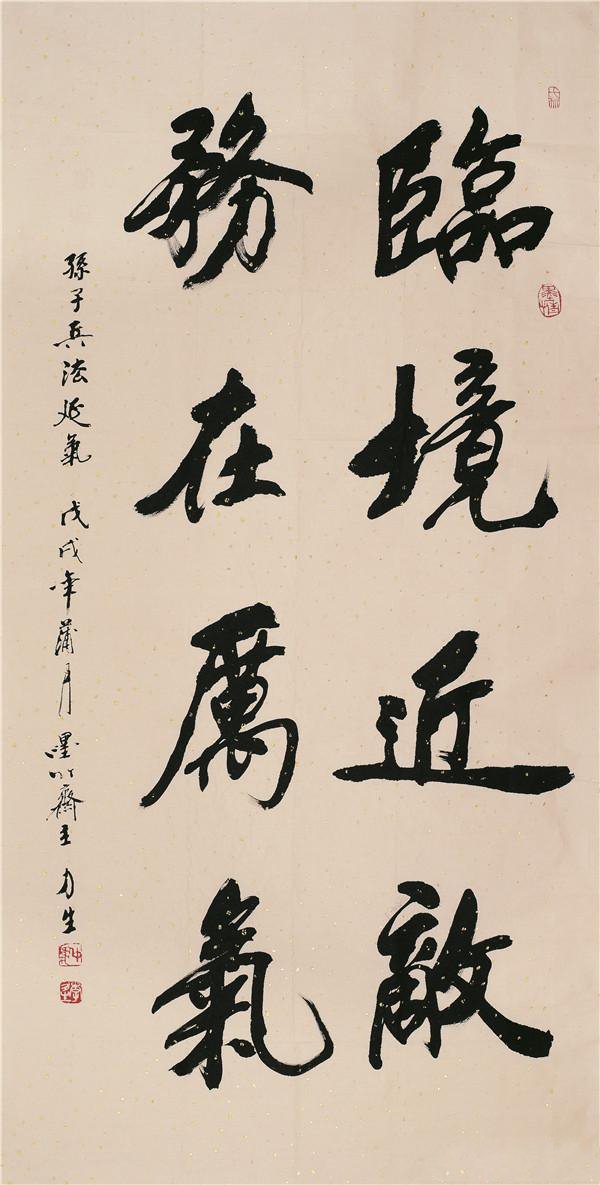 臨境近敵
務在厲氣
孫子兵法延氣 戊戌年蒲月 墨竹齋主 生
墨情